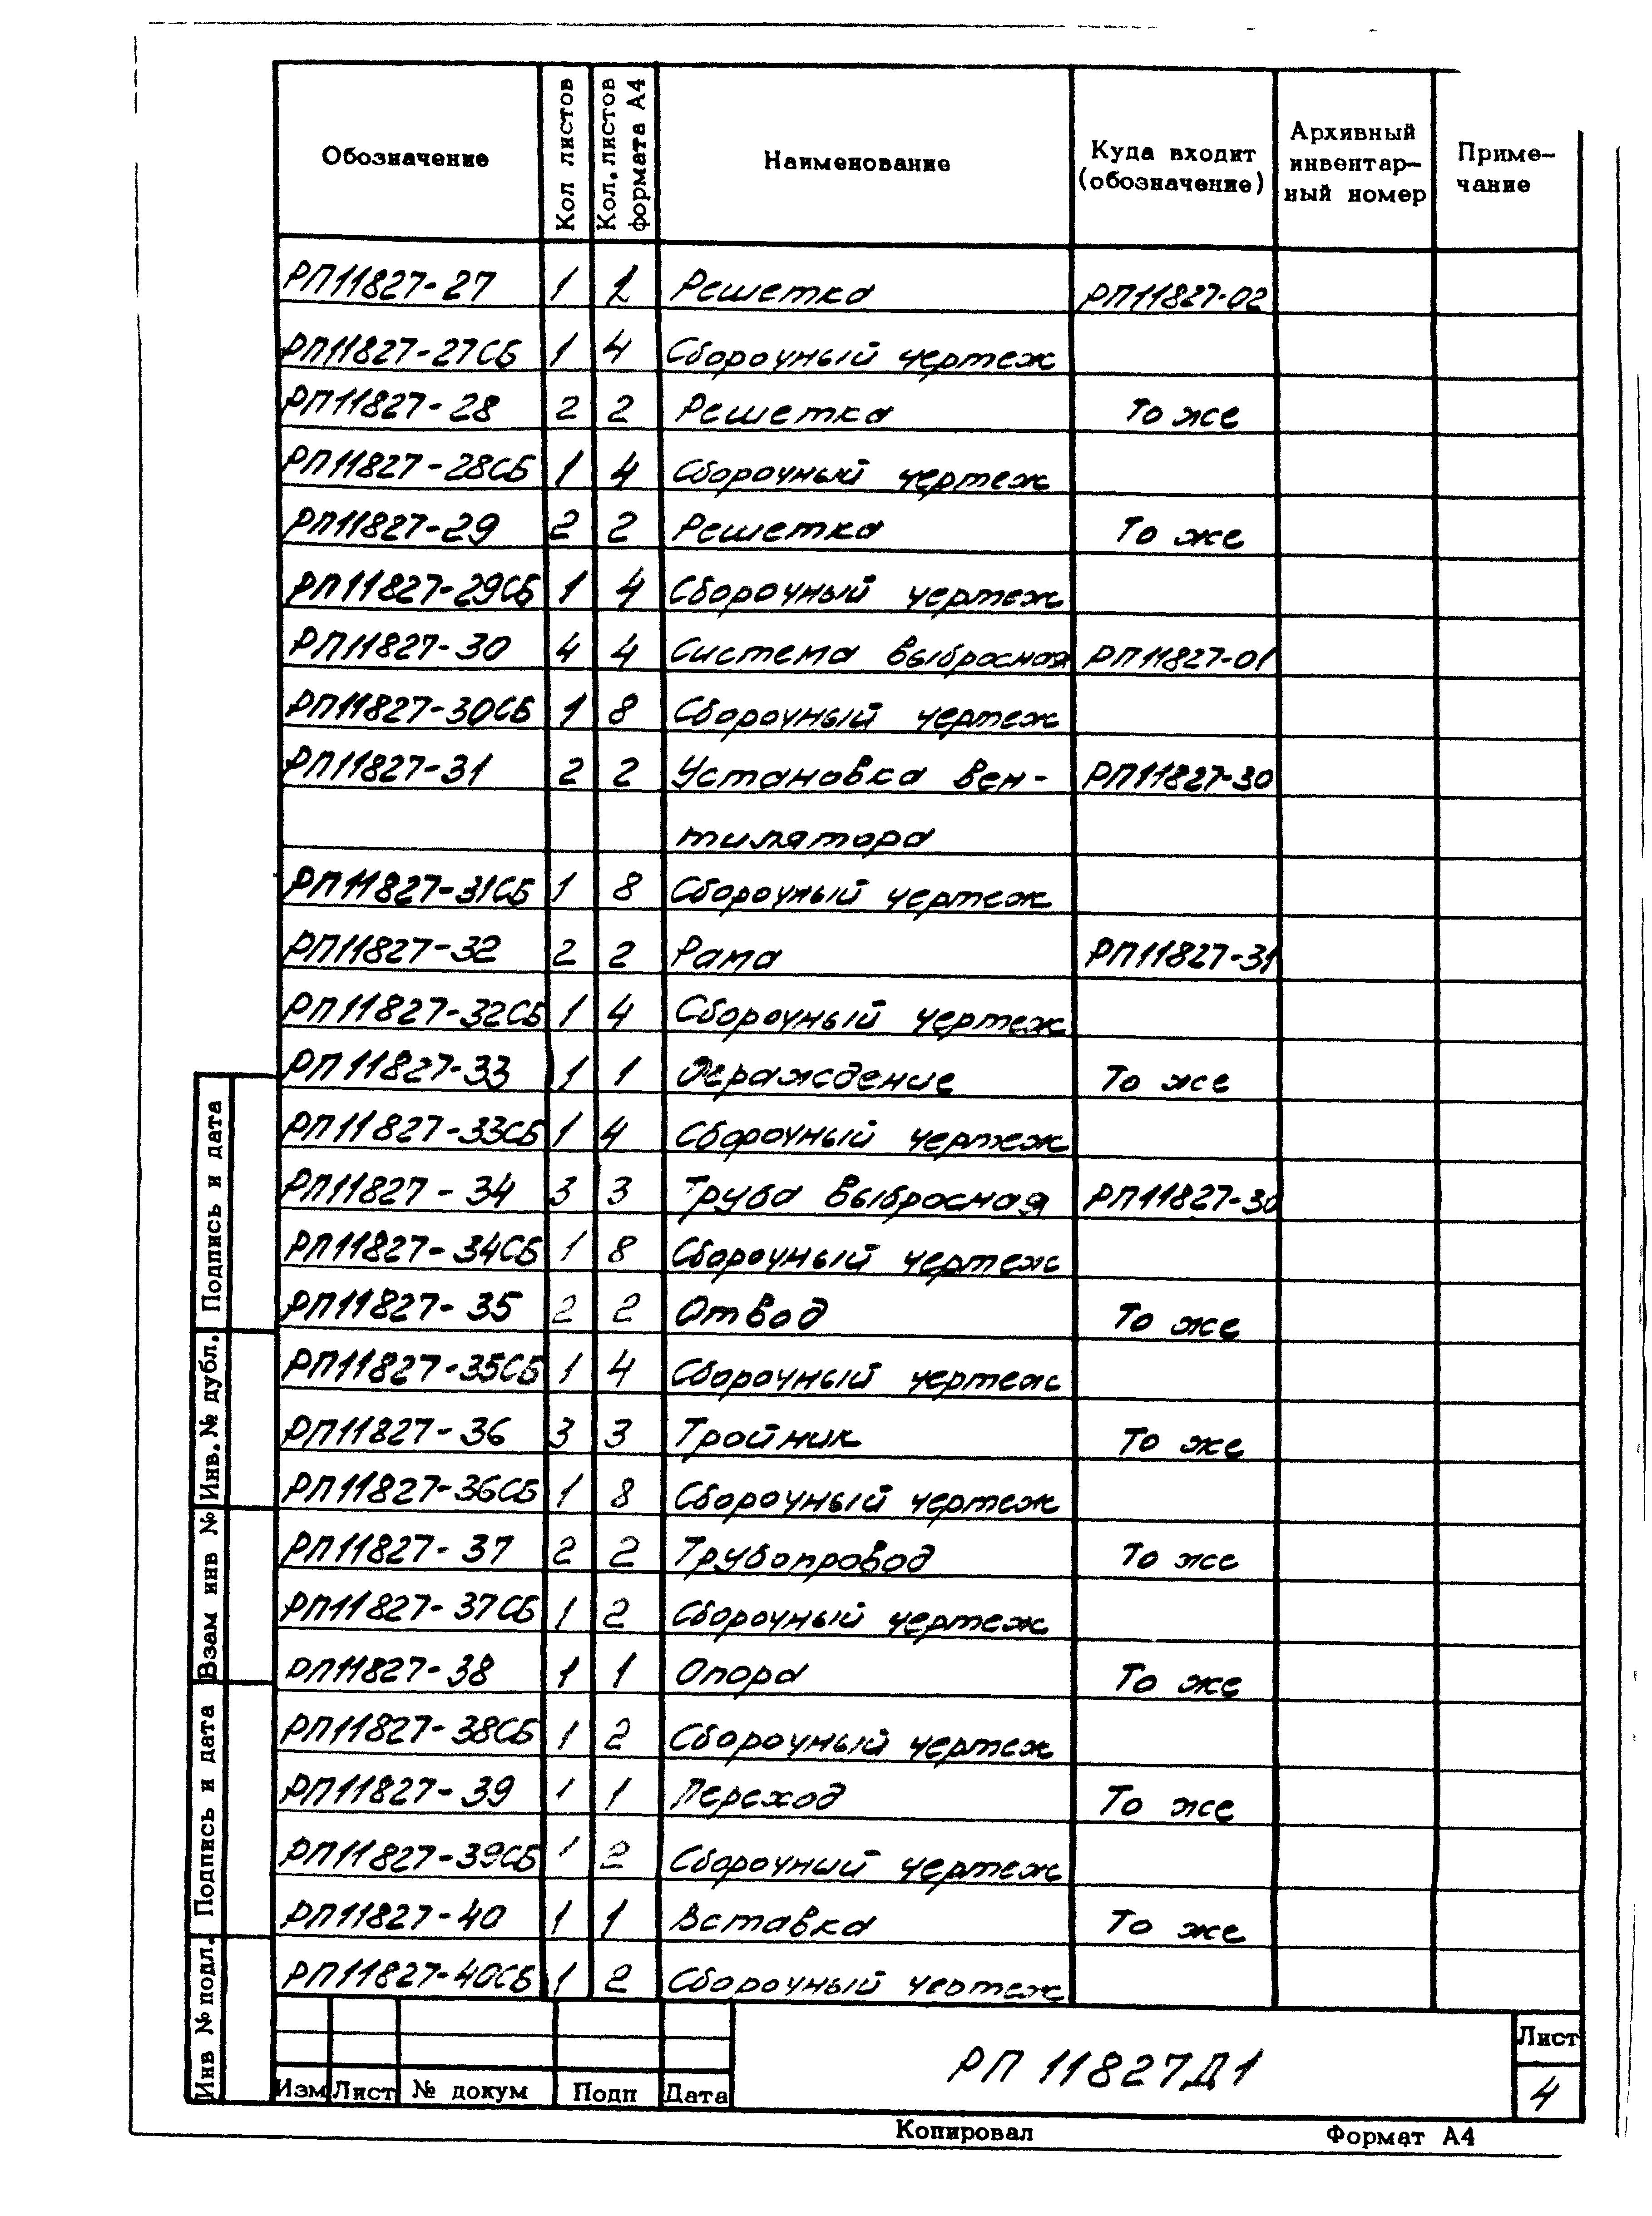 Обозначение Кол листов Кол. листов формата А4 Наименование Куда входит (обозначение) Архивный инвентар-ный номер Приме-чание
РП11827-27 1 1 Решетка РП11827-02
РП11827-27СБ 1 4 Сборочный чертеж
РП11827-28 2 2 Решетка То же
РП11827-28СБ 1 4 Сборочный чертеж
РП11827-29 2 2 Решетка То же
РП11827-29СБ 1 4 Сборочный чертеж
РП11827-30 4 4 Система выбросная РП11827-01
РП11827-30СБ 1 8 Сборочный чертеж
РП11827-31 2 2 Установка вен- РП11827-30
тилятора
РП11827-31СБ 1 8 Сборочный чертеж
РП11827-32 2 2 Рама РП11827-31
РП11827-32СБ 1 4 Сборочный чертеж
РП11827-33 1 1 Ограждение То же
РП11827-33СБ 1 4 Сборочный чертеж
РП11827-34 3 3 Труба выбросная РП11827-30
РП11827-34СБ 1 8 Сборочный чертеж
РП11827-35 2 2 Отвод То же
РП11827-35СБ 1 4 Сборочный чертеж
РП11827-36 3 3 Тройник То же
РП11827-36СБ 1 8 Сборочный чертеж
РП11827-37 2 2 Трубопровод То же
РП11827-37СБ 1 2 Сборочный чертеж
РП11827-38 1 1 Опора То же
РП11827-38СБ 1 2 Сборочный чертеж
РП11827-39 1 1 Переход То же
РП11827-39СБ 1 2 Сборочный чертеж
РП11827-40 1 1 Вставка То же
РП11827-40СБ 1 2 Сборочный чертеж
Подпись и дата
Инв. № дубл.
Взам инв №
Подпись и дата
Инв № подл.
Изм Лист № докум Подп Дата
РП 11827Д1
Лист
4
Копировал Формат А4